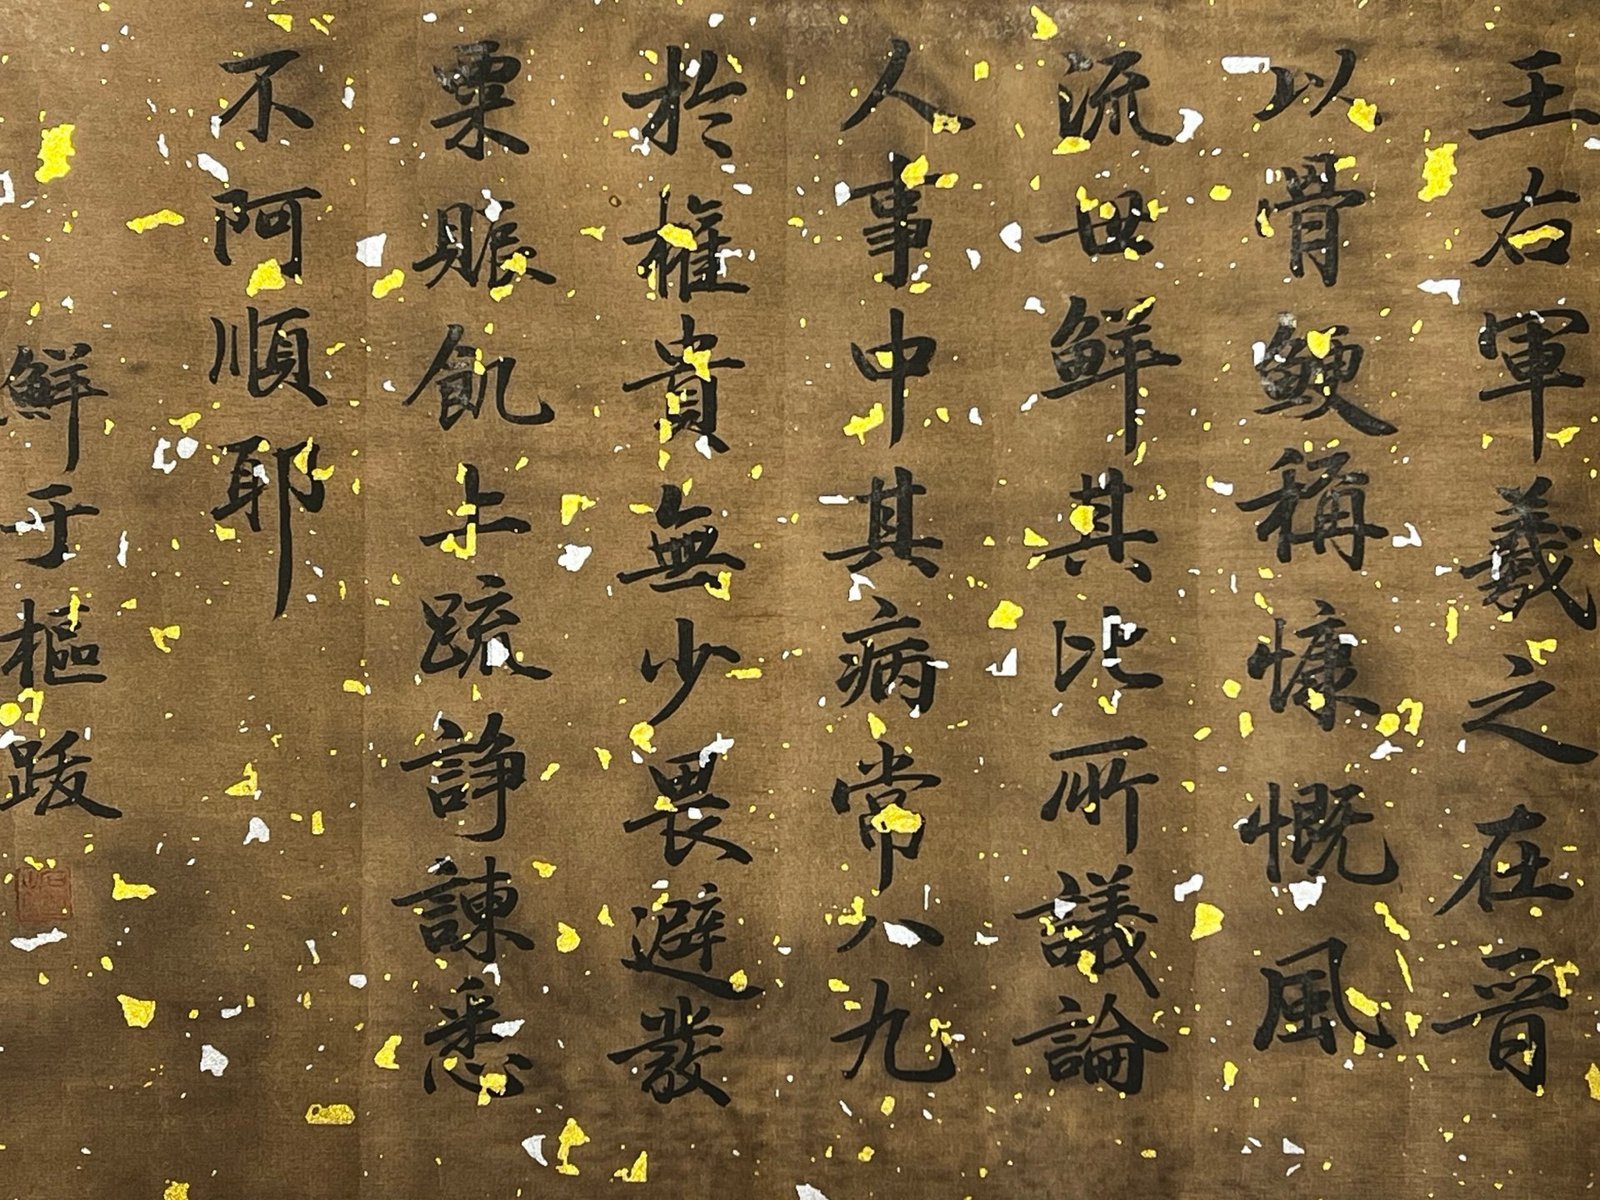 王右軍羲之在晉
以骨鯁稱慷慨風
流世鮮其比所議論
人事中其病常八九
於權貴無少畏避發
粟賑飢上疏諍諫悉
不阿順耶
鮮于樞跋